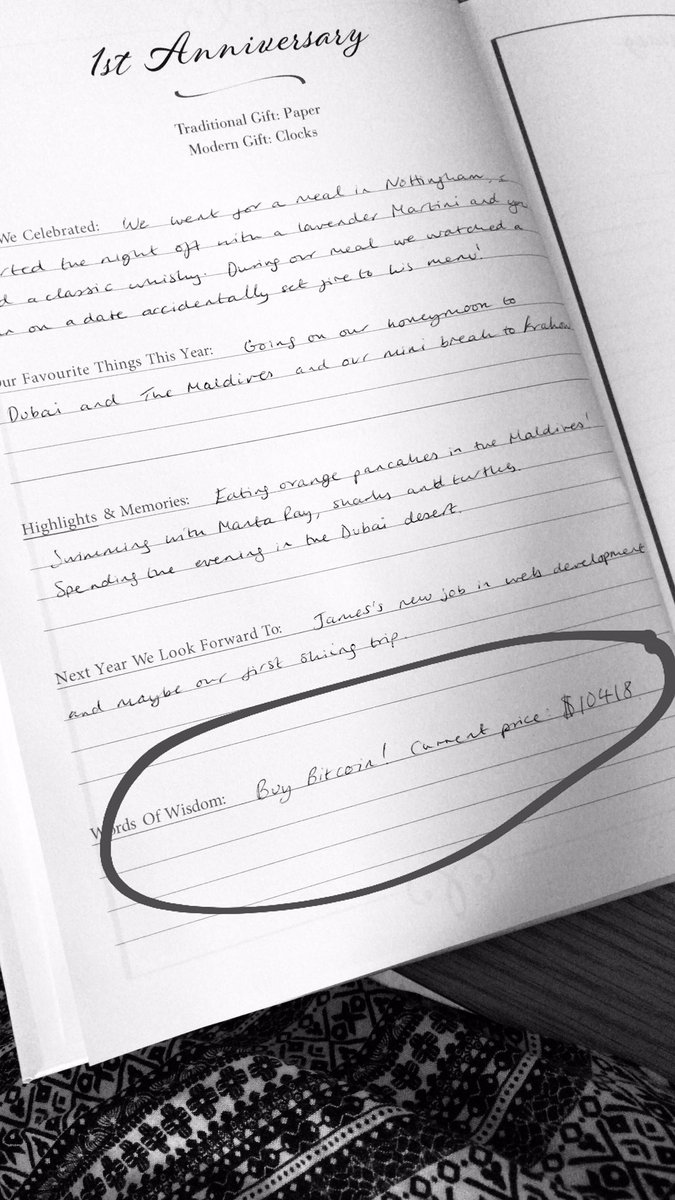 1st Anniversary
Traditional Gift: Paper
Modern Gift: Clocks
We Celebrated: We went for a meal in Nottingham,
the night off with a lavender Martini and you
a classic whisky. During our meal we watched a
on a date accidentally set fire to his menu!
Favourite Things This Year: Going on our honeymoon to
Dubai and The Maldives and our mini break to Krakow
Highlights & Memories: Eating orange pancakes in the Maldives!
Swimming with Manta Ray, sharks and turtles.
Spending the evening in the Dubai desert.
Next Year We Look Forward To: James's new job in web development
and maybe our first skiing trip.
Words Of Wisdom: Buy Bitcoin! Current price: $10418